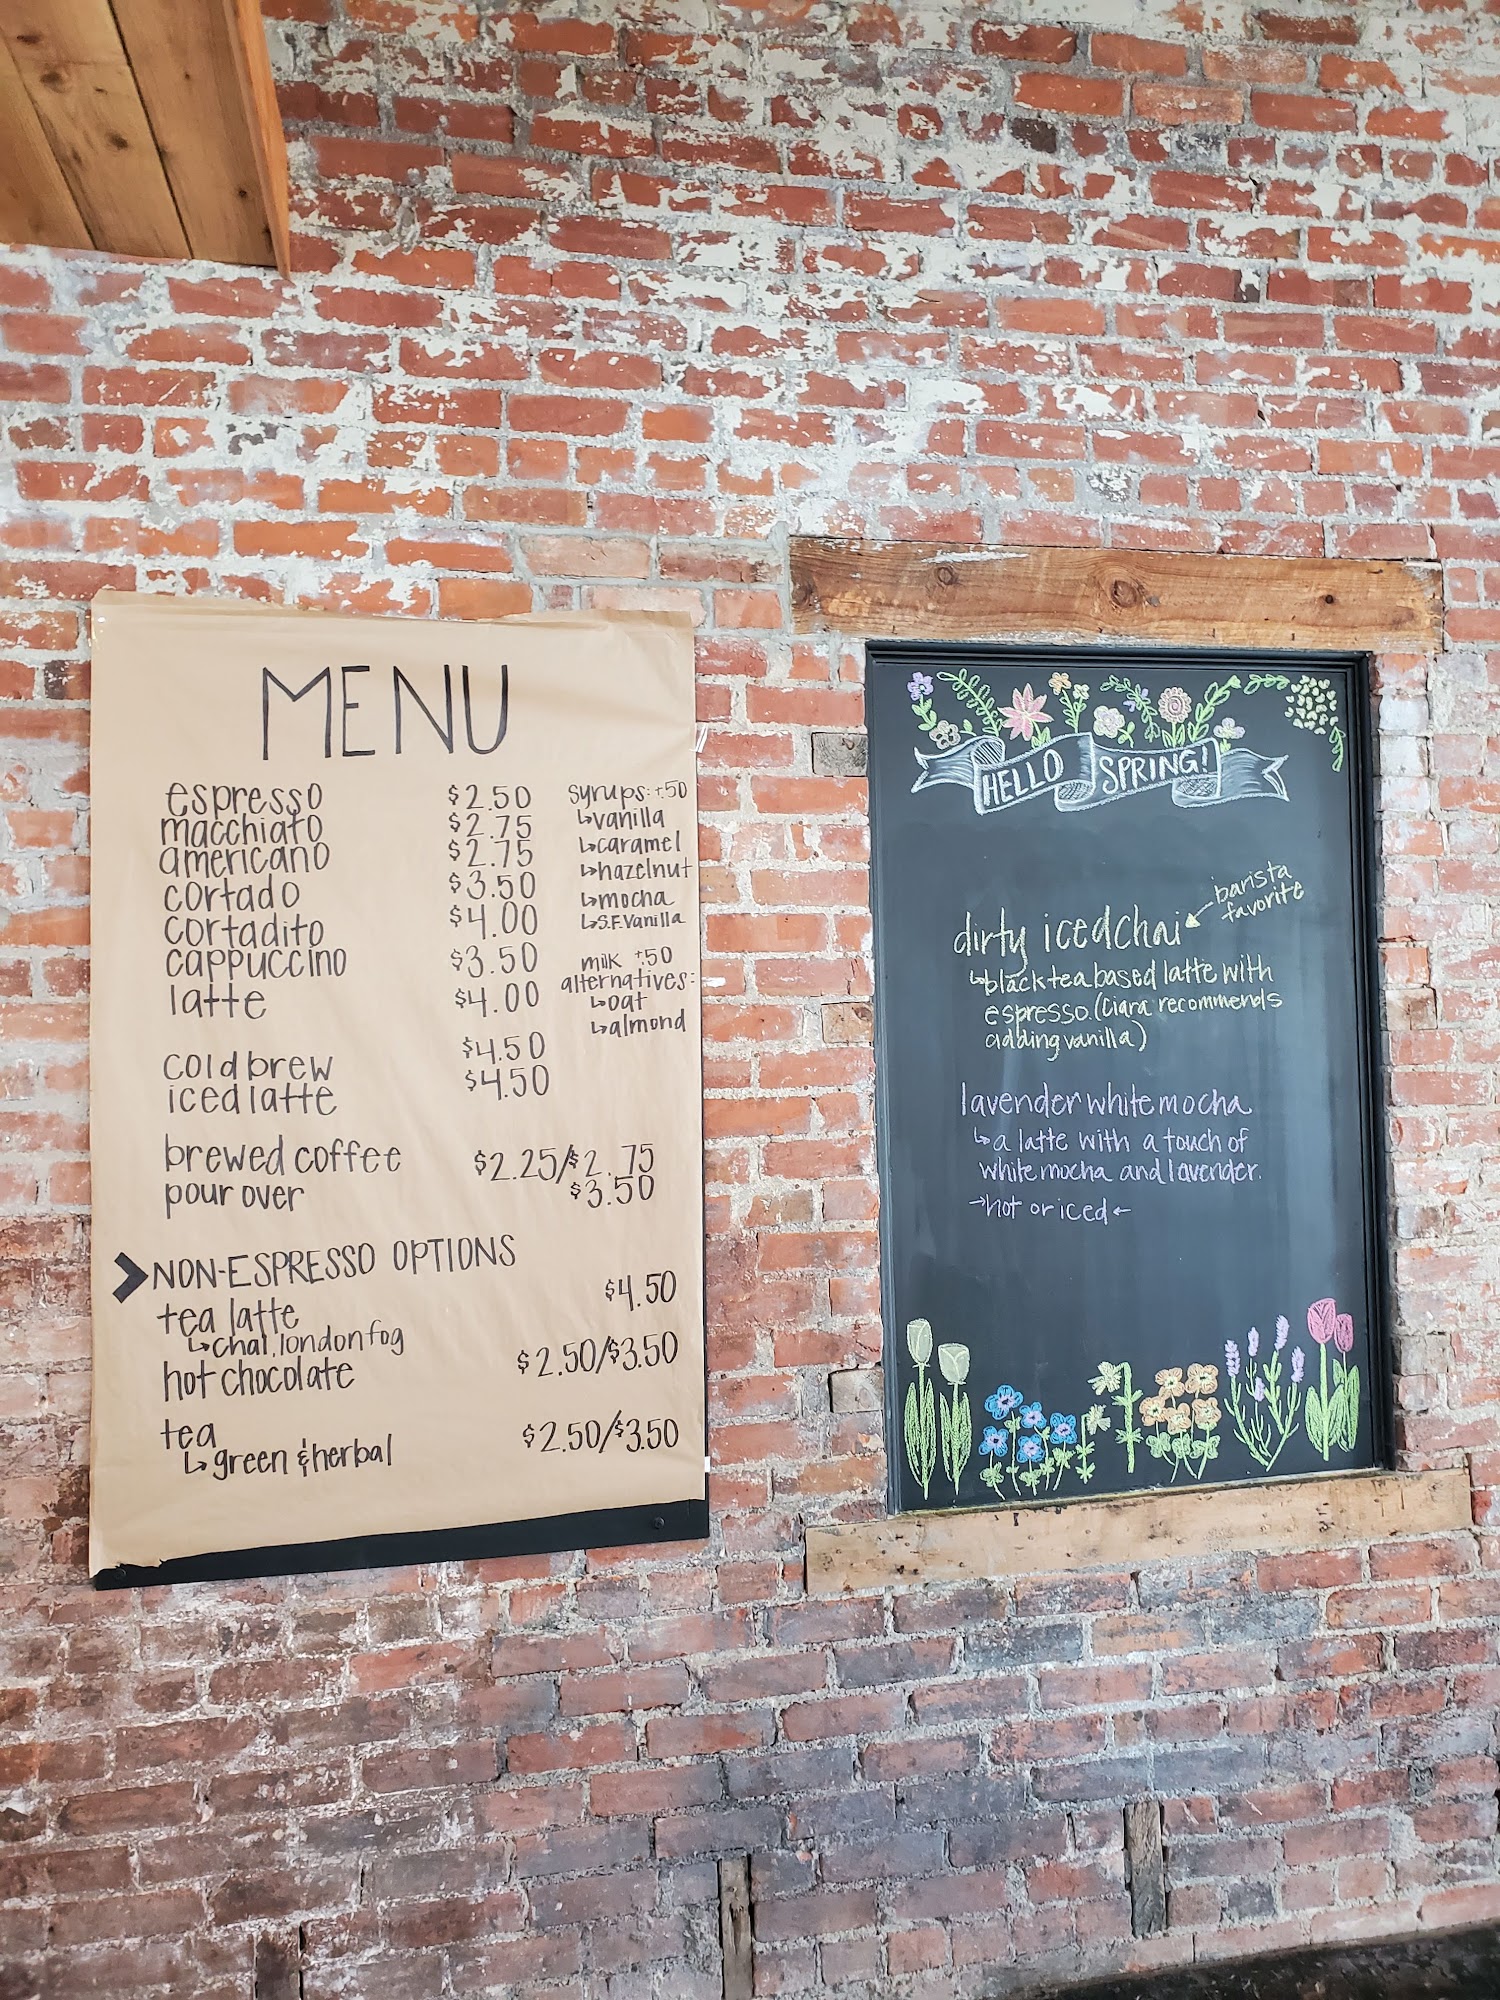 MENU
espresso $2.50
macchiato $2.75
americano $2.75
cortado $3.50
cortadito $4.00
cappuccino $3.50
latte $4.00
cold brew $4.50
iced latte $4.50
brewed coffee $2.25/$2.75
pour over $3.50
syrups: +.50
↳vanilla
↳caramel
↳hazelnut
↳mocha
↳S.F. Vanilla
milk +.50
alternatives:
↳oat
↳almond
NON-ESPRESSO OPTIONS
tea latte $4.50
↳chai, london fog
hot chocolate $2.50/$3.50
tea $2.50/$3.50
↳green & herbal
HELLO SPRING!
barista
favorite
dirty iced chai
↳black tea based latte with
espresso. (Ciara recommends
adding vanilla)
lavender white mocha
↳a latte with a touch of
white mocha and lavender.
→hot or iced←